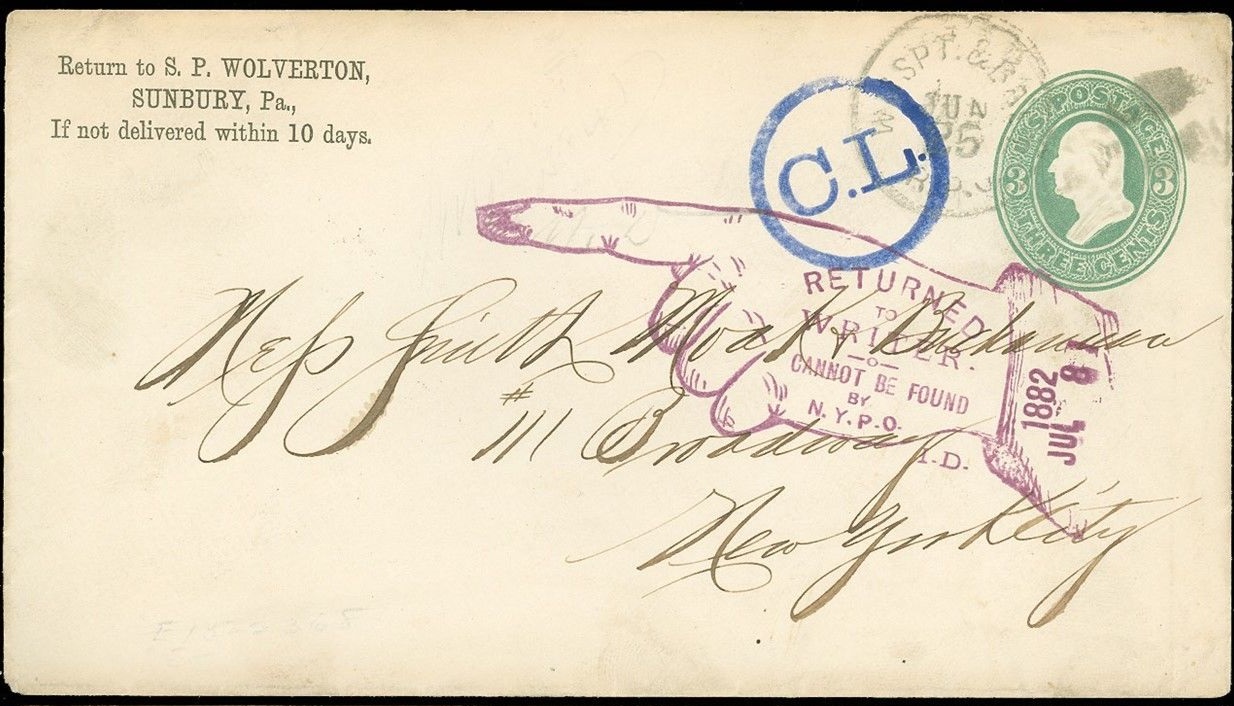 Return to S. P. WOLVERTON,
SUNBURY, Pa.,
If not delivered within 10 days.
SPT. & 
JUN
26
R.P.O.
C.L.
U.S. POSTAGE
3 3
THREE CENTS
RETURNED
TO
WRITER.
—o—
CANNOT BE FOUND
BY
N.Y.P.O.
I.D.
1882
JUL 8 1
Mess Smith Moak & Buchanan
# 111 Broadway
New York City